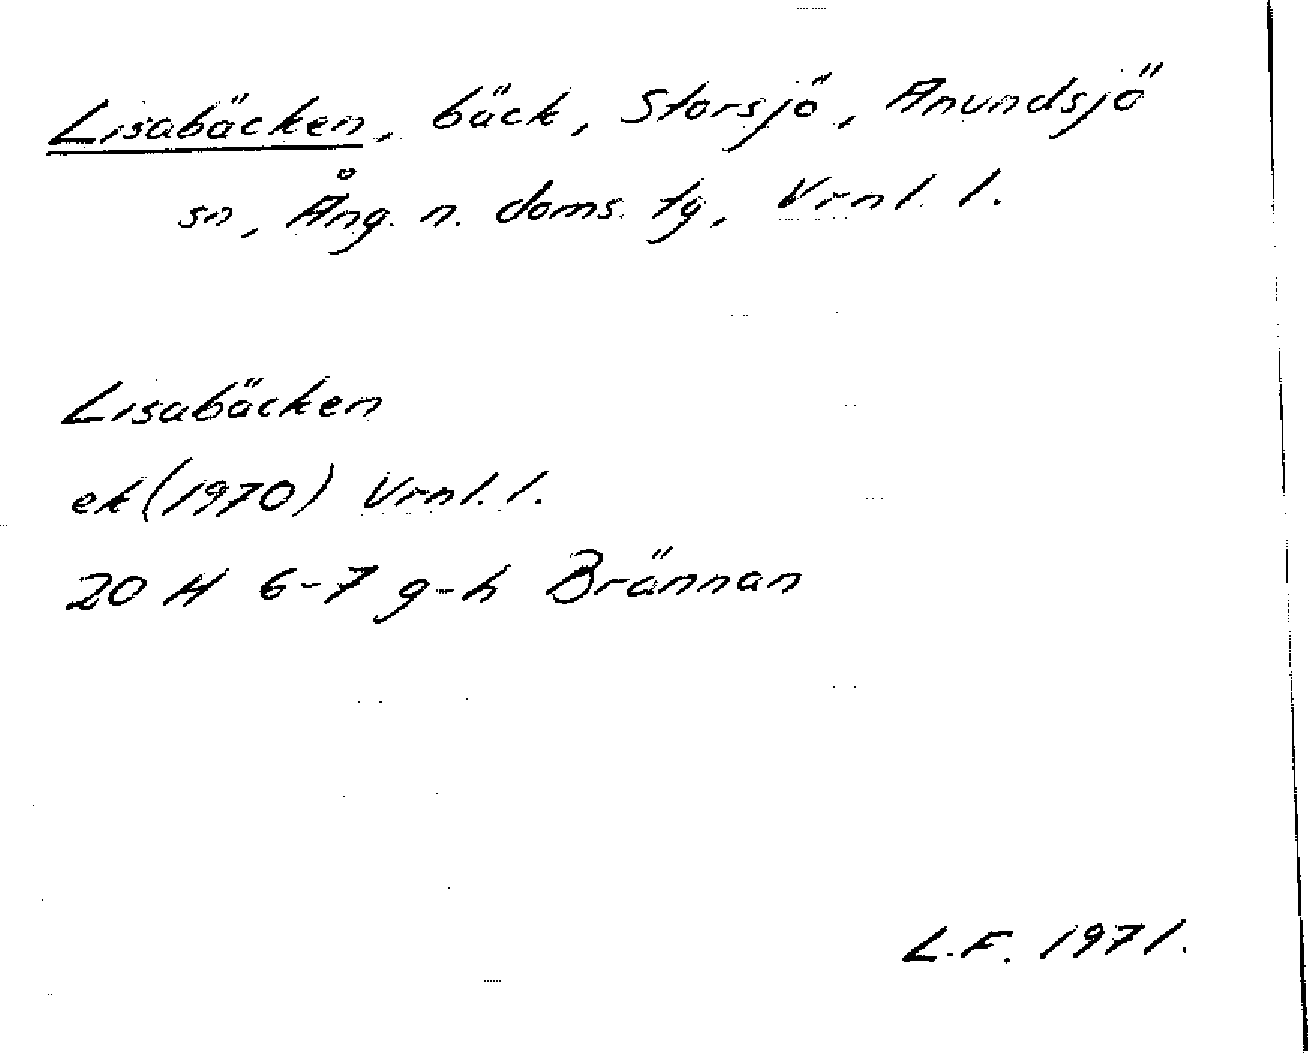 Lisabäcken, bäck, Storsjö, Anundsjö
sn, Ång. n. doms. tg, Vrnl. l.
Lisabäcken
ek (1970) Vrnl. l.
20 H 6-7 g-h Brännan
L.F. 1971.